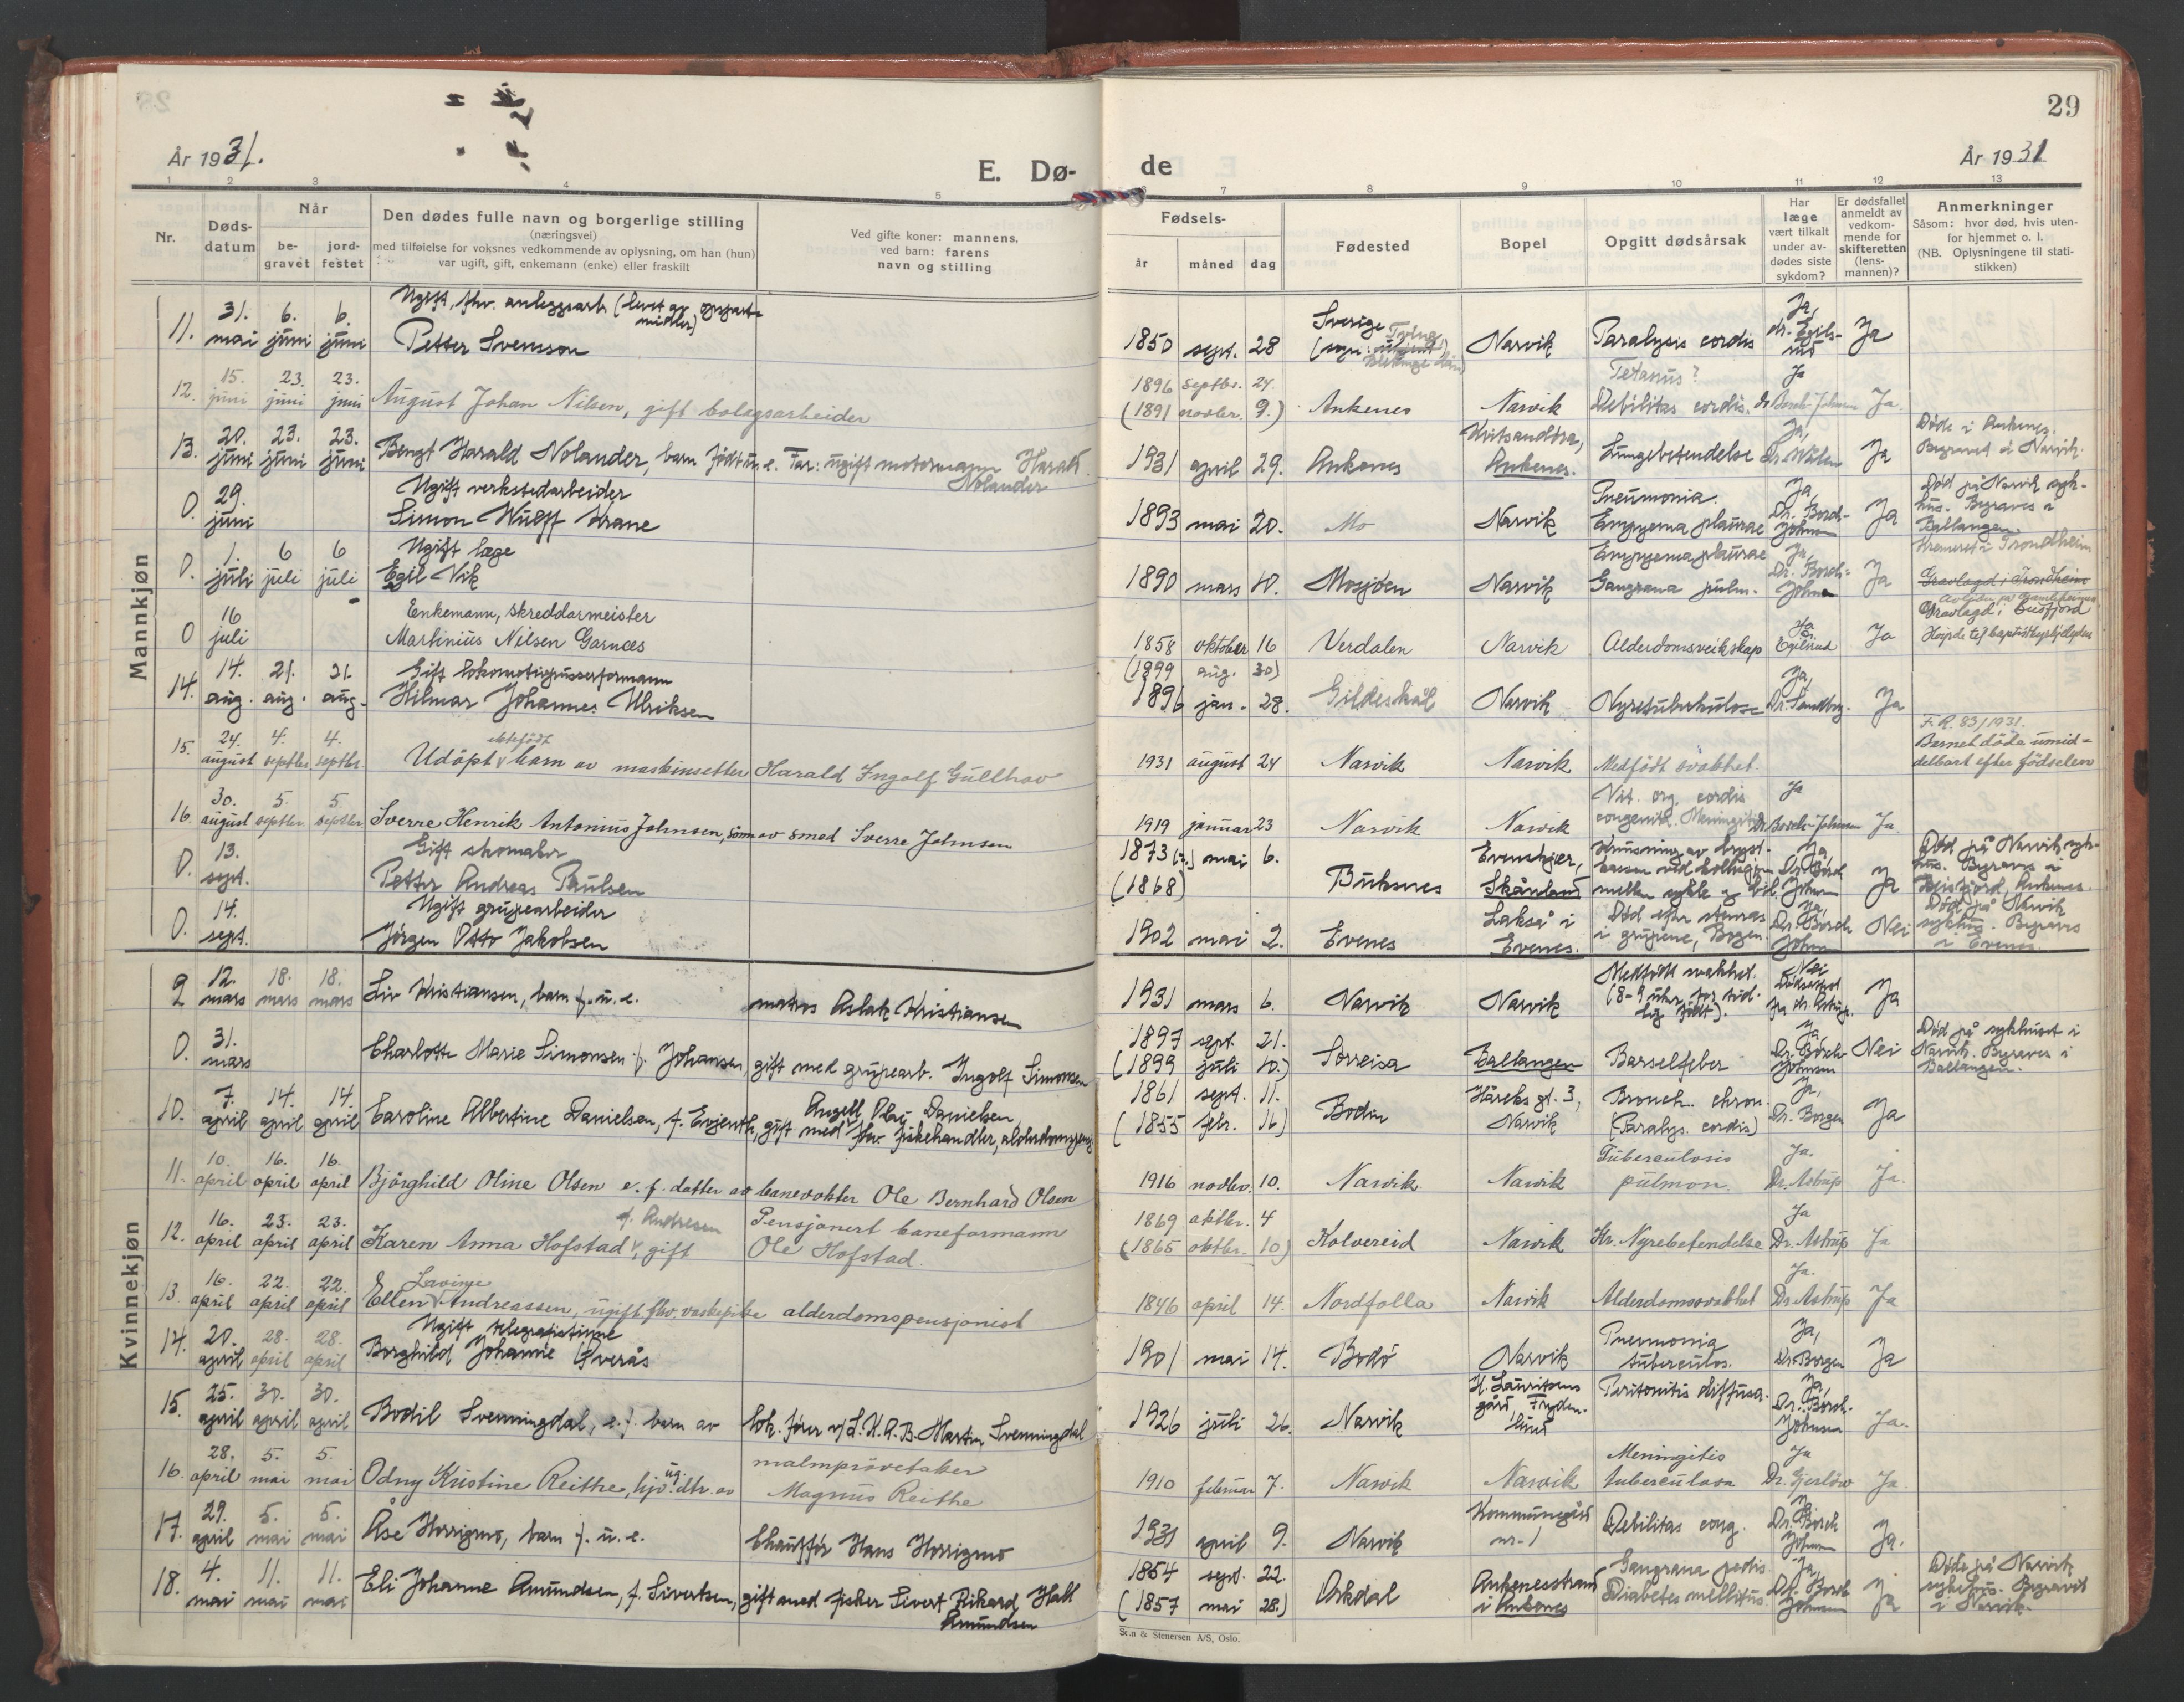 29
År 1931.
E. Dø-
de
År 1931
1 2 3 4 5 6 7 8 9 10 11 12 13
Nr.
Døds-
datum
Når
be-
gravet
jord-
festet
Den dødes fulle navn og borgerlige stilling
(næringsvei)
med tilføielse for voksnes vedkommende av oplysning, om han (hun)
var ugift, gift, enkemann (enke) eller fraskilt
Ved gifte koner: mannens,
ved barn: farens
navn og stilling
Fødsels-
år måned dag
Fødested
Bopel
Opgitt dødsårsak
Har
læge
vært tilkalt
under av-
dødes siste
sykdom?
Er dødsfallet
anmeldt av
vedkom-
mende for
skifteretten
(lens-
mannen)?
Anmerkninger
Såsom: hvor død, hvis uten-
for hjemmet o. l.
(NB. Oplysningene til stati-
stikken)
Mannkjøn
11. 31. mai 6. juni 6. juni Ugift, fhv. anleggsarb. (levet av oppsparte midler)
Petter Svensson
1850 sept. 28 Sverige Narvik Paralysis cordis Ja, dr. Egilsrud Ja
12. 15. juni 23. juni 23. juni August Johan Nilsen, gift bolagsarbeider
1896 septbr. 24. Tetanus? Ja
(1891 novbr. 9.) Ankenes Narvik Debilitas cordis. dr Borch-Johnsen Ja.
13. 20. juni 23. juni 23. juni Bengt Harald Nolander, barn født u. e. Far: ugift motormann Harald Nolander
1931 april 29. Ankenes Kvitsandøra, Ankenes. Lungebetendelse Ja, Dr. Wiien Ja Døde i Ankenes. Begravet i Narvik.
0. 29. juni Ugift verkstedarbeider
Simon Wulff Krane
1893 mai 20. Mo Narvik Pneumonia. Empyema pleurae Ja, Dr. Borch-Johnsen Ja Død på Narvik sykhus. Begraves i Ballangen.
0. 1. juli 6 juli 6 juli Ugift læge
Egil Vik
1890 mars 10. Mosjøen Narvik Empyema pleurae Gangræna pulm. Ja, Dr. Borch-Johnsen Ja Kremeret i Trondheim
Gravlagd i Trondheim
0 16 juli Enkemann, skreddarmeister
Martinius Nilsen Garnæs
1858 oktober 16 Verdalen Narvik Alderdomsveikskap Ja Egilsrud Ja Gravlagd i Beisfjord
Høyrde til baptistkyrkjelyden
14. 14. aug. 21. aug. 21. aug. Gift lokomotivpusserformann
Hilmar Johannes Ulriksen
(1899 aug. 30)
1896 jan. 28. Gildeskål Narvik Nyretuberkulose Ja, Dr. Sandberg. Ja
15. 24. august 4. septbr. 4. septbr. Udöpt ektefödt barn av maskinsetter Harald Ingolf Gullhav
1931 august 24 Narvik Narvik Medfödt svakhet. F. R. 83/1931. Barnet døde umiddelbart efter fødselen
16. 30. august 5. septbr. 5. septbr. Sverre Henrik Antonius Johnsen, sönn av smed Sverre Johnsen
1919 januar 23 Narvik Narvik Vit. org. cordis congenit. Meningitis Ja dr Borch-Johnsen Ja
0. 13. sept. Gift skomaker
Petter Andreas Paulsen
1873 mai 6. (1868) Buksnes Evenskjer, Skånland Knusning av brystkassen ved kollisjon mellem sykle og bil. Ja Dr. Borch Johnsen Ja Død på Narvik sykhus. Begraves i Beisfjord, Ankenes.
0. 14. sept. Ugift grubearbeider
Jørgen Otto Jakobsen
1902 mai 2. Evenes Lakså i Evenes. Død efter stenras i grubene, Bogen. Ja, Dr. Borch Johnsen Nei Død på Narvik sykhus. Begraves i Evenes.
Kvinnekjøn
9 12. mars 18. mars 18. mars Liv Kristiansen, barn f. u. e. matros Aslak Kristiansen
1931 mars 6. Narvik Narvik Medfødt svakhet. (8-9 uker for tidlig født). Nei Dødsattest fra dr. Astrup. Ja
0. 31. mars Charlotte Marie Simonsen f. Johansen, gift med grubearb. Ingolf Simonsen
1897 sept. 21.
(1899 juli 10.) Sørreisa Ballangen Barselfeber Ja Dr. Borch-Johnsen Nei Død på sykhuset i Narvik. Begraves i Ballangen.
10. 7. april 14. april 14. april Caroline Albertine Danielsen, f. Evjenth, gift med Angell Olaj Danielsen fhv. fiskehandler, alderdomspensj.
1861 sept. 11.
(1855 febr. 16) Bodin Håreks gt. 3, Narvik Bronch. chron. (Paralys. cordis) Ja, Dr. Borgen Ja
11. 10. april 16. april 16. april Bjørghild Oline Olsen e. f. datter av banevokter Ole Bernhard Olsen
1916 novbr. 10. Narvik Narvik Tuberculosis pulmon. Ja. Dr. Astrup Ja.
12. 16. april 23. april 23. april Karen Anna Hofstad f. Andresen, gift Pensjonert baneformann Ole Hofstad.
1869 oktbr. 4
(1865 oktbr. 10) Kolvereid Narvik Kr. Nyrebetendelse Ja Dr. Astrup Ja
13. 16. april 22. april 22. april Ellen Lovinje Andreassen, ugift fhv. vaskepike alderdomspensjonist
1846 april 14. Nordfolla Narvik Alderdomssvakhet Ja. Dr Astrup Ja
14. 20. april 28. april 28. april Ugift telegrafistinne
Borghild Johanne Øverås
1901 mai 14. Bodö Narvik Pneumonia tuberculos. Ja, Dr. Borgen Ja
15. 25. april 30. april 30. april Bodil Svenningdal, e. f. barn av lok. fører v/L.K.A.B. Martin Svenningdal
1926 juli 26. Narvik H. Lauritzens gård, Frydenlund Peritonitis diffusa. Ja, Dr. Borch-Johnsen Ja.
16. 28. april 5. mai 5. mai Odny Kristine Reithe, hjv. ug. dtr. av malmprövetaker Magnus Reithe
1910 februar 7. Narvik Narvik Meningitis tuberculosa Ja Dr. Gjerløw Ja.
17. 29. april 5. mai 5. mai Åse Horrigmo, barn f. u. e. Chauffør Hans Horrigmo
1931 april 9. Narvik Kommunegård nr. 1 Debilitas cong. Ja Dr. Borch Johnsen Ja.
18. 4. mai 11. mai 11. mai Eli Johanne Amundsen, f. Sivertsen, gift med fisker Sivert Rikard Hall Amundsen
1854 sept. 22.
(1857 mai 28.) Orkdal Ankenesstrand i Ankenes Gangræna pedis Diabetes mellitus Ja, Dr. Borch Johnsen Ja Døde på Narvik sykehus. Begravet i Narvik.
& Stenersen A/S, Oslo.